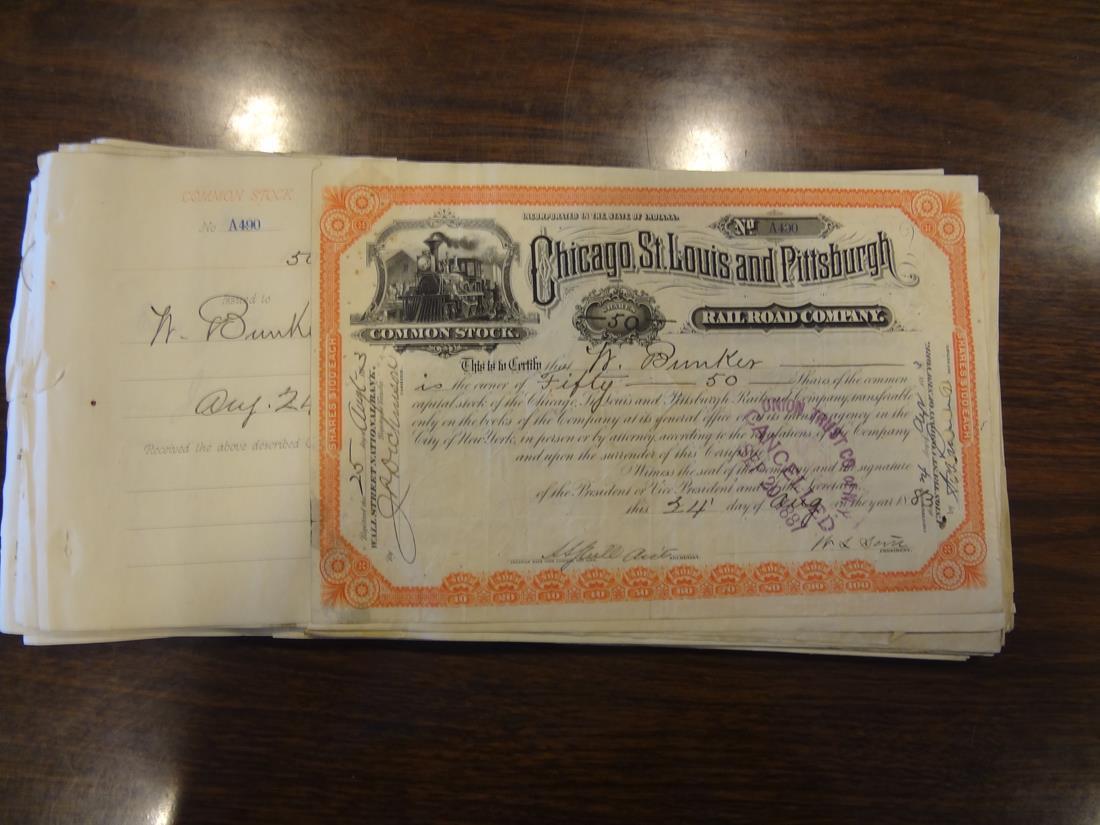 COMMON STOCK
No A490
50
Issued to
W. Bunker
Aug. 24
Received the above described
INCORPORATED IN THE STATE OF INDIANA.
No. A490
Chicago, St. Louis and Pittsburgh
RAILROAD COMPANY.
COMMON STOCK.
SHARES
50
This is to Certify that W. Bunker
is the owner of Fifty 50 Shares of the common
capital stock of the Chicago, St. Louis and Pittsburgh Railroad Company, transferable
only on the books of the Company at its general office or at its transfer agency in the
City of New York, in person or by attorney, according to the regulations of the Company
and upon the surrender of this Certificate.
Witness the seal of the Company and the signature
of the President or Vice President and the Secretary
this 24 day of Aug in the year 188
PRESIDENT.
SHARES $100 EACH
25 Aug 3
WALL STREET NATIONAL BANK,
By
SHARES $100 EACH
UNION TRUST CO. OF N.Y.
CANCELLED
SEP 20 1887